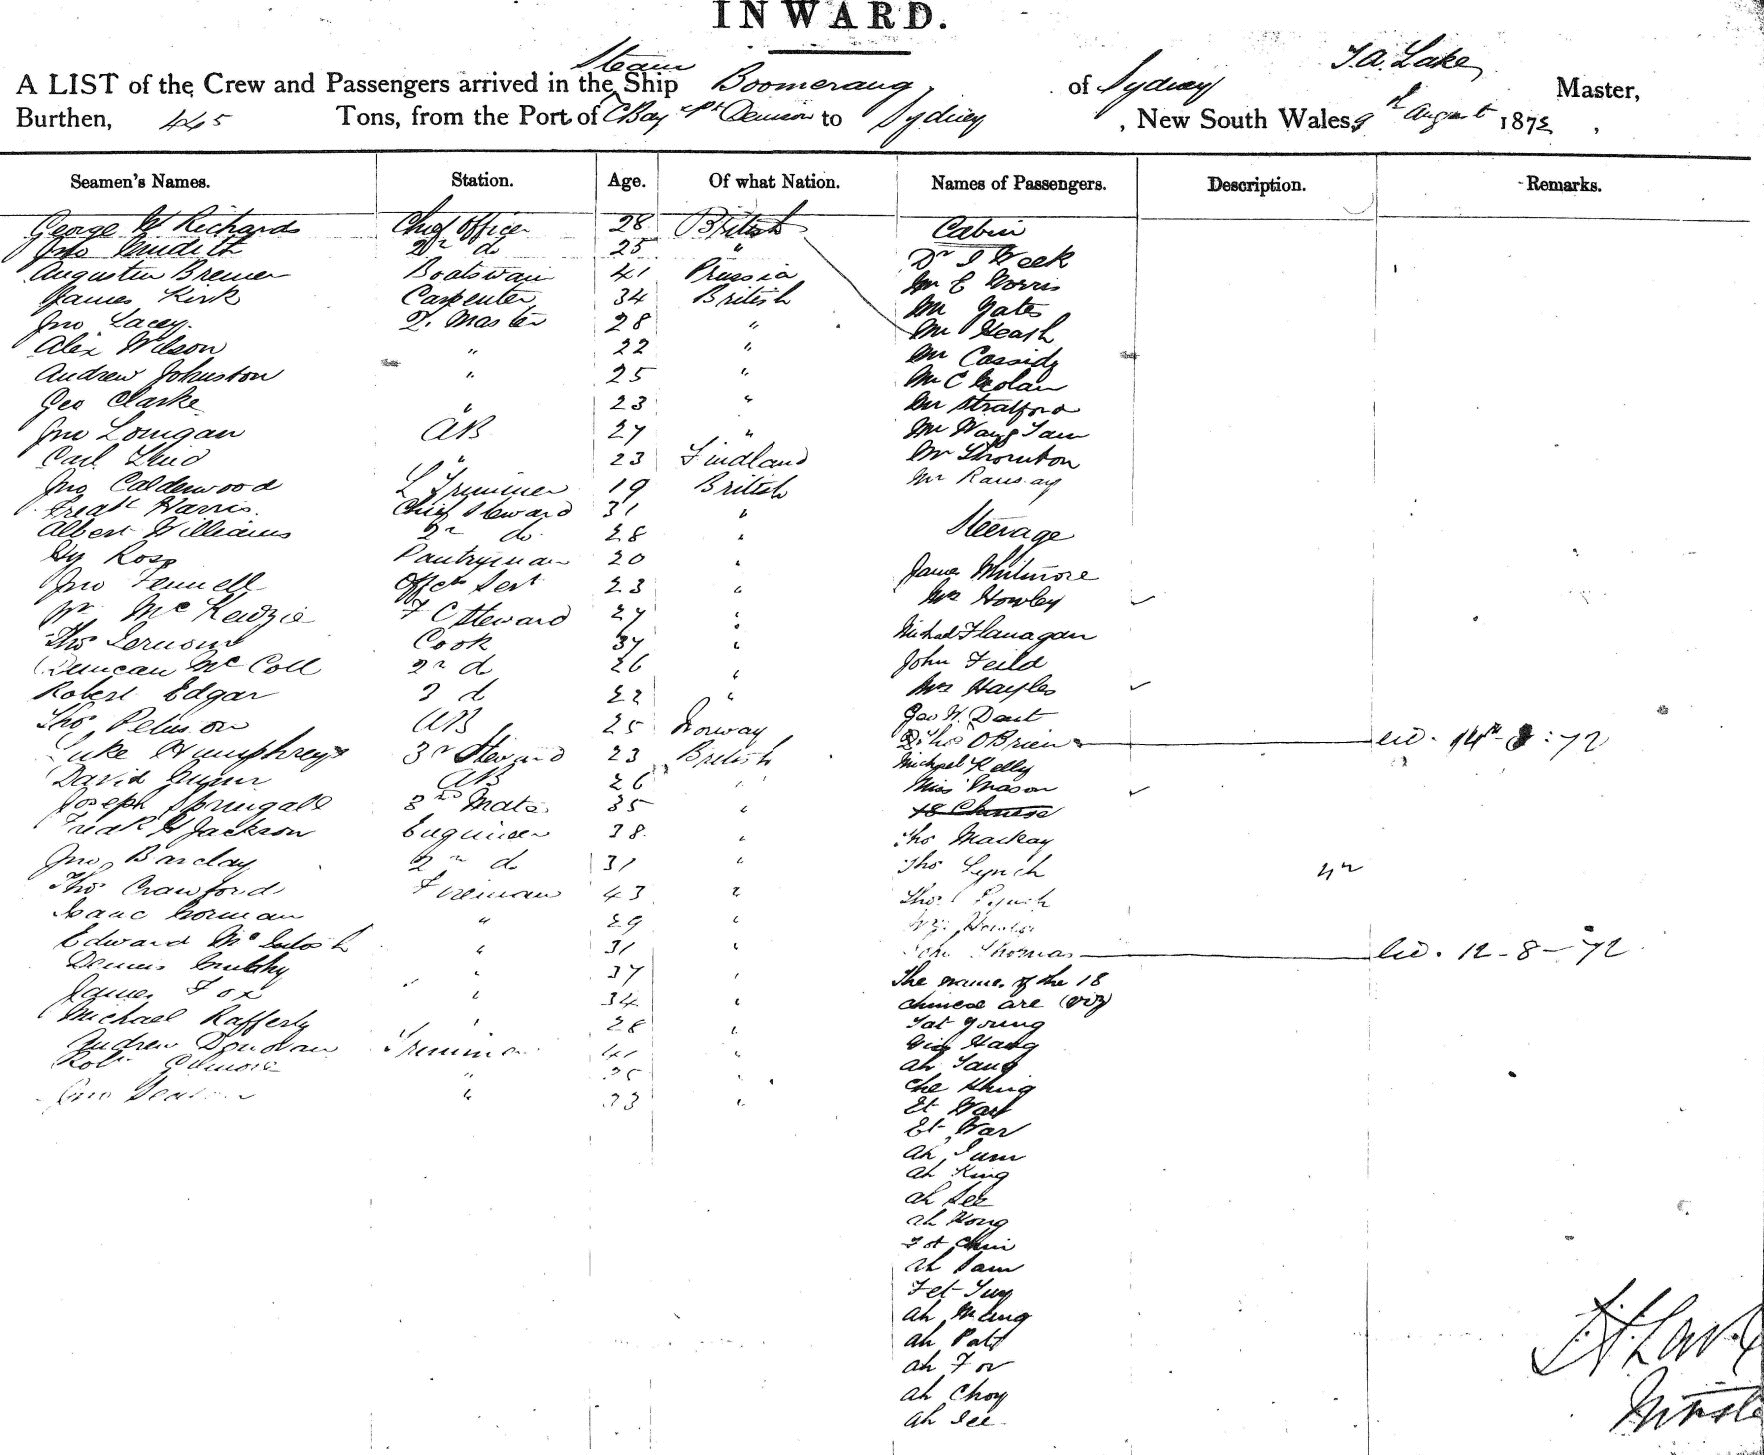 INWARD.
A LIST of the Crew and Passengers arrived in the Steam Ship Boomerang of Sydney T A. Lake Master,
Burthen, 445 Tons, from the Port of C Bay & Pt Denison to Sydney, New South Wales, 9th August 1872,
Seamen's Names. Station. Age. Of what Nation. Names of Passengers. Description. Remarks.
George W Richards Chief Officer 28 British Cabin
Jno 2nd do 25 "
Dr I Week
Augustin Bremer Boatswain 41 Prussia Mr E Norris
James Kirk Carpenter 34 British Mr Yates
Jno Lacey. Q. Master 28 " Mr Heash
Alex Wilson " 22 " Mr Cassidy
Andrew Johnston " 25 " Mr C Nolan
Geo Clarke " 23 " Mr Stratford
Jno Lonigan AB 27 " Mr Wang Tam
Carl Lind " 23 Findland Mr Thornton
Jno Calderwood L Trimmer 19 British Mr Ramsay
Fredk Harris. Chief Steward 31 "
Albert Williams 2nd do 28 " Steerage
Hy Ross Pantryman 20 "
Jno Fennell Offcs Sert 23 " James Whitmore
Wm McKedzie F C Steward 27 " Mrs Howley
Thos Cook 37 " Michael Flanagan
Duncan McColl 2nd d 26 " John Feild
Robert Edgar 3 d 22 " Mrs Hayles
Thos AB 25 Norway Geo W. Daut
Luke Humphreys 3rd Steward 23 British Thos OBrien 14th 8:72
David AB 26 " Michael Kelly
Miss Mason
Joseph Springall 3rd Mate 35 " 18 Chinese
Fredk G Jackson Engineer 38 " Thos Mackay
Jno Barclay 2nd do 31 " Thos Lynch
Thos Crawford Fireman 43 " Thos Lynch
Isaac Gorman " 29 "
Edward McIntosh " 31 " John Thomas 12-8-72
Dennis " 37 " The names of the 18
James Fox " 34 " Chinese are (viz)
Michael Rafferty " 28 " Tat Young
Andrew Donovan Trimmer 41 " Hang
Robt 25 " Ah Tang
Jno " 23 " Che Khing
Et Wat
Et War
Ah Sum
Ah King
Ah See
Ah Kong
Fot Chin
Ah Sam
Fet Suy
Ah Mung
Ah
Ah For
Ah Choy
Ah See